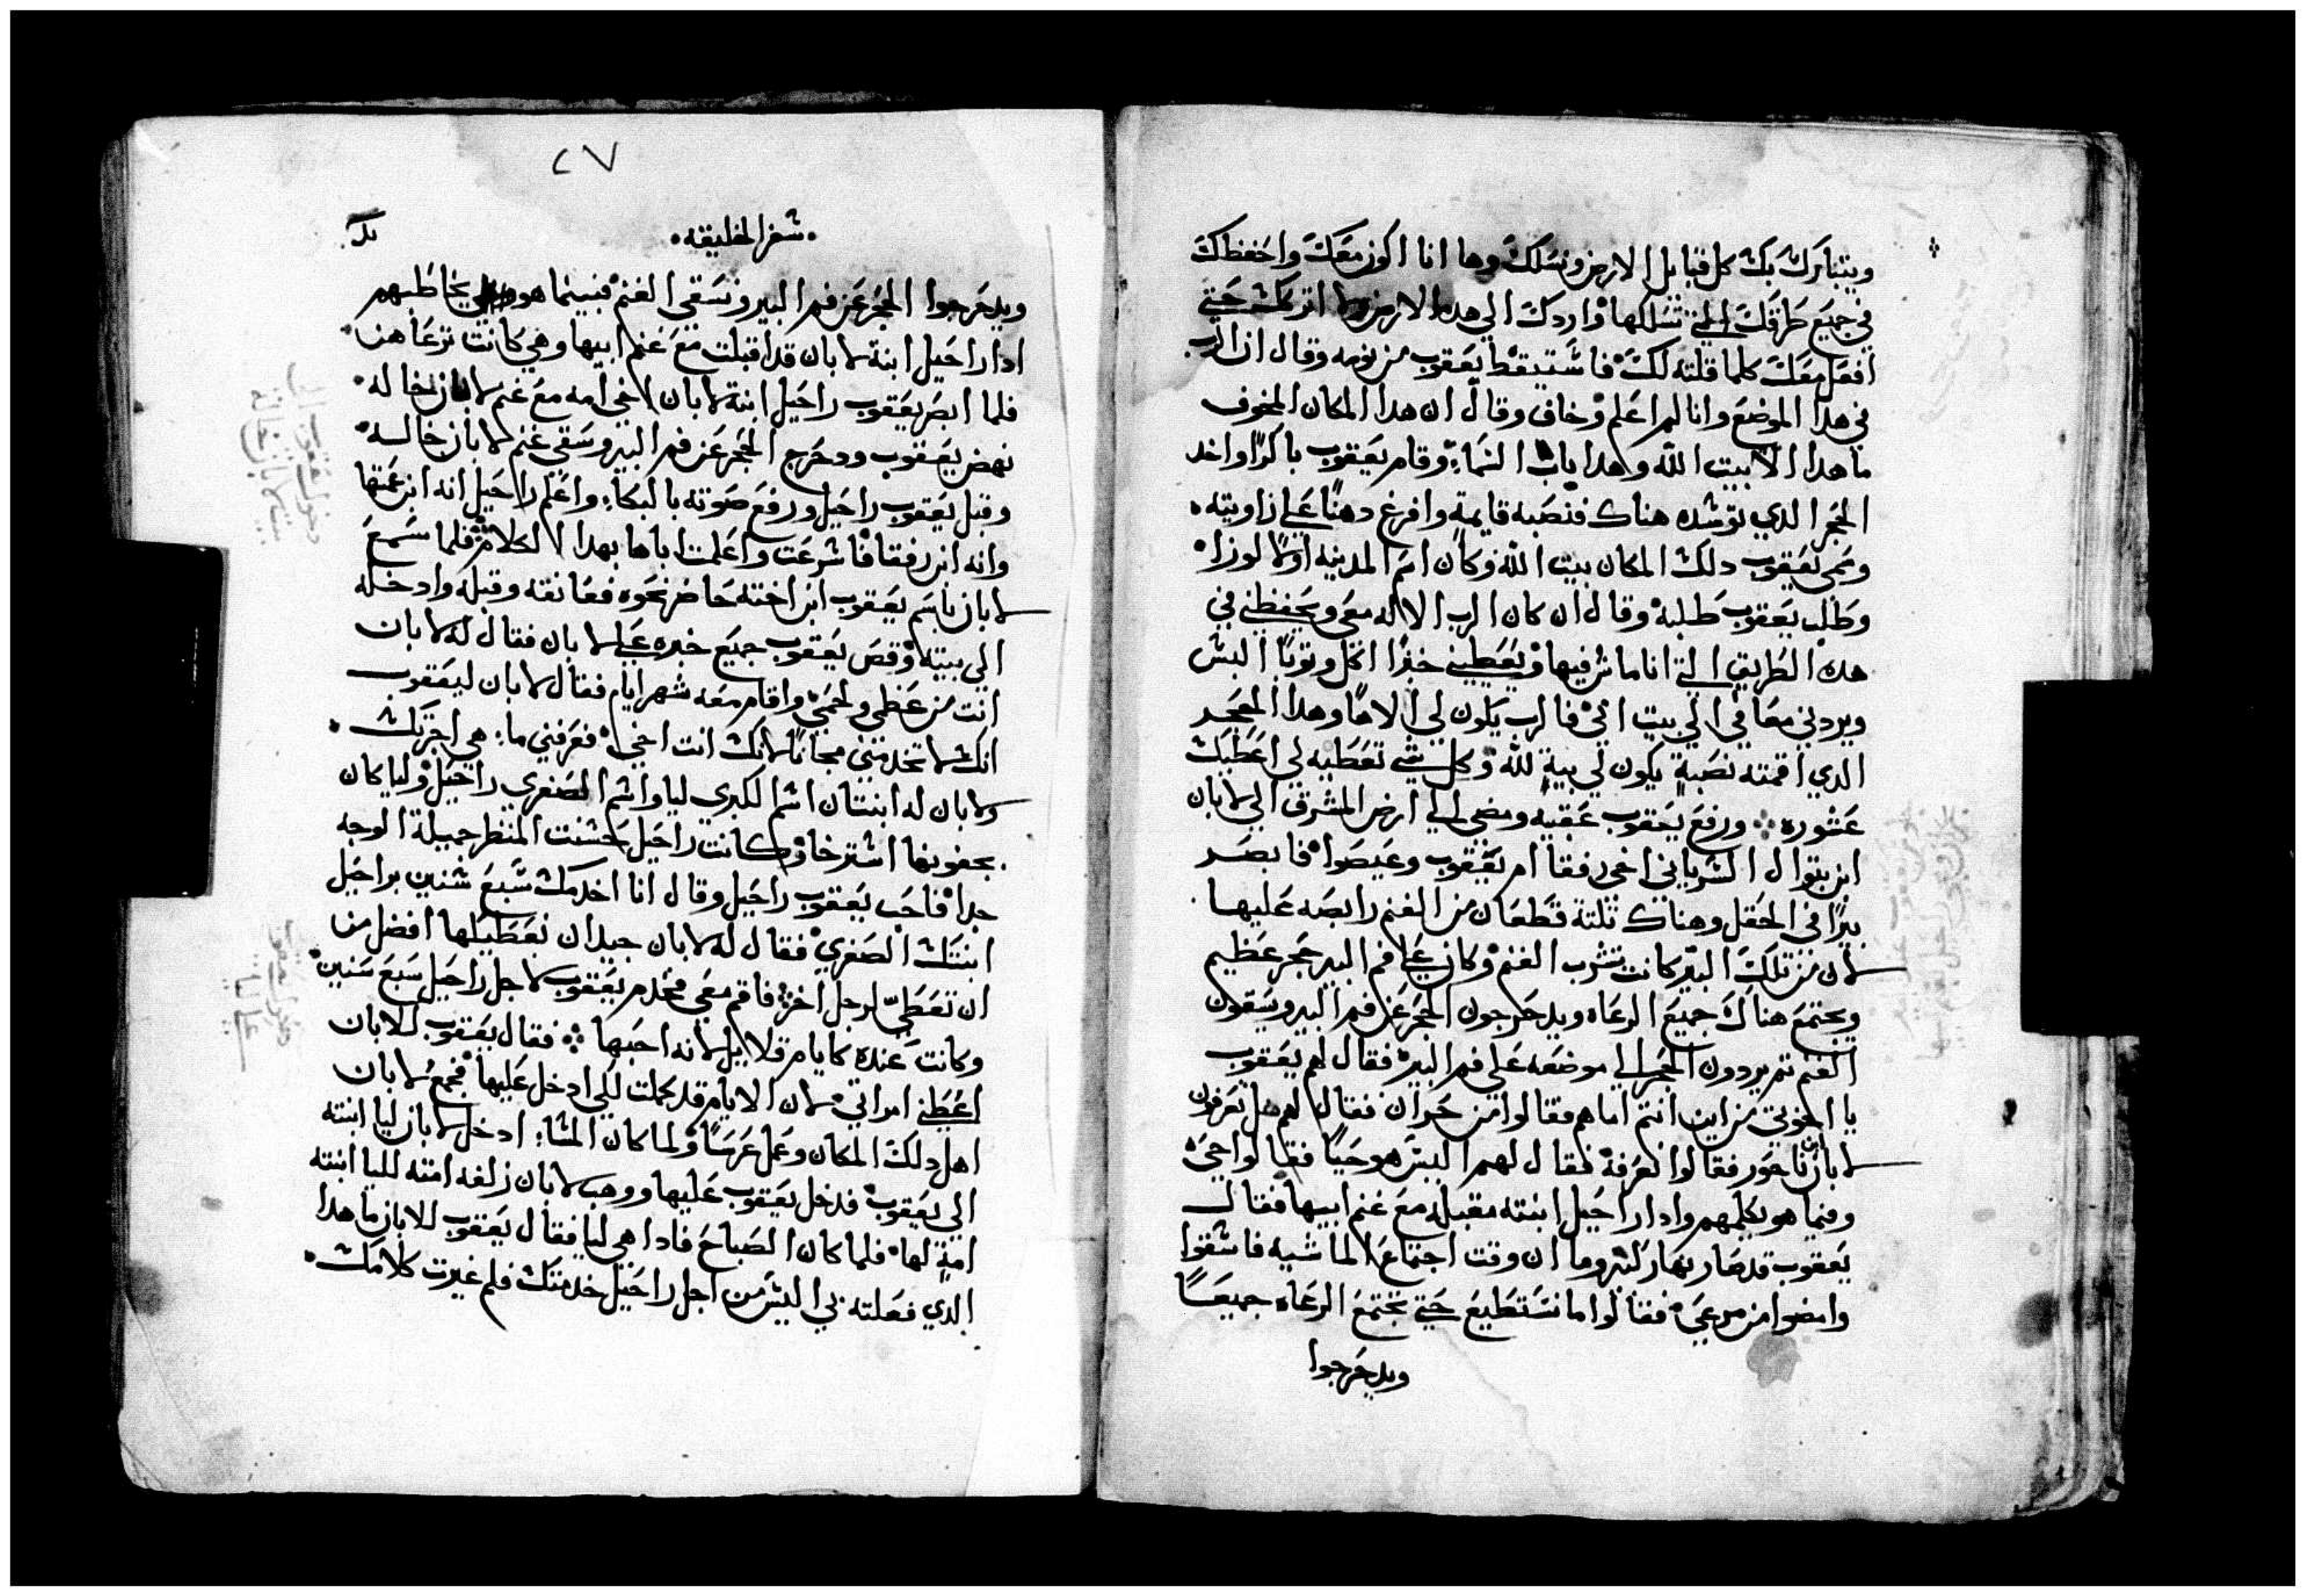 ويتبارك بك كل قبايل الارض ونسلك وها انا اكون معك واحفظك
في جميع طرقك التي تسلكها واردك الي هده الارض ولا اتركك حتي
افعل معك كلما قلته لك فاستيقظ يعقوب من نومه وقال ان الرب
في هدا الموضع وانا لم اعلم وخاف وقال ان هدا المكان المخوف
ما هدا الا بيت الله وهدا باب السماء وقام يعقوب باكرا واخد
الحجر الدي توسده هناك فنصبه قايمة وافرغ دهنا علي زاويته
وسمي يعقوب دلك المكان بيت الله وكان اسم المدينه اولا لوزا
وطلب يعقوب طلبة وقال ان كان الرب الاله معي ويحفظني في
هده الطريق التي انا ماش فيها ويعطيني خبزا اكل وثوبا البس
ويردني معافي الي بيت ابي فالرب يكون لي الاها وهدا الحجر
الدي اقمته نصبة يكون لي بية لله وكل شي تعطيه لي اعطيك
عشوره ورفع يعقوب عقبيه ومضي الي ارض المشرق الي لابان
ابن بتوال السرياني اخي رفقا ام يعقوب وعيصوا فابصر
بيرا في الحقل وهناك ثلثة قطعان من الغنم رابصه عليها
لان من تلك البير كانت تشرب الغنم وكان علي فم البير حجر عظيم
ويجتمع هناك جميع الرعاه ويدحرجون الحجر عن فم البير ويسقون
الغنم ثم يردون الحجر الي موضعه علي فم البير فقال لهم يعقوب
يا اخوتي من اين انتم اما هم فقالوا من حران فقال لهم هل تعرفون
لابان بن ناحور فقالوا نعرفه فقال لهم اليس هو حيا فقالوا حي
وفيما هو يكلمهم وادا راحيل ابنته مقبلة مع غنم ابيها فقال
يعقوب قد صار نهار كثير وما ان وقت اجتماع الماشيه فاسقوا
وامضوا من مرعي فقالوا ما نستطيع حتي تجتمع الرعاه جميعا
ويدحرجوا
٢٧
سفر الخليقه
ويدحرجوا الحجر عن فم البير ونسقي الغنم فبينما هو يخاطبهم
ادا راحيل ابنة لابان قد اقبلت مع غنم ابيها وهي كانت ترعاهن
فلما ابصر يعقوب راحيل ابنة لابان اخي امه مع غنم لابان خاله
نهض يعقوب ودحرج الحجر عن فم البير وسقي غنم لابان خاله
وقبل يعقوب راحيل ورفع صوته بالبكاء واعلم راحيل انه ابن عمتها
وانه ابن رفقا فاسرعت واعلمت اباها بهدا الكلام فلما سمع
لابان باسم يعقوب ابن اخته حاضر نحوه فعانقه وقبله وادخله
الي بيته وقص يعقوب جميع خبره علي لابان فقال له لابان
انت من عظمي ولحمي واقام معه شهر ايام فقال لابان ليعقوب
انك لا تخدمني مجانا لانك انت اخي فعرفني ما هي اجرتك
ولابان له ابنتان اسم الكبري ليا واسم الصغري راحيل وليا كان
بجفونها استرخا وكانت راحيل حسنت المنظر جميلة الوجه
جدا فاحب يعقوب راحيل وقال انا اخدمك سبع سنين براحيل
ابنتك الصغري فقال له لابان جيد ان نعطيكها افضل من
ان تعطي لرجل اخر فاقم معي فخدم يعقوب لاجل راحيل سبع سنين
وكانت عنده كايام قلايل لانه احبها فقال يعقوب للابان
اعطني امراتي لان الايام قد كملت لكي ادخل عليها فجمع لابان
اهل دلك المكان وعمل عرسا ولما كان المساء ادخل لابان ليا ابنته
الي يعقوب فدخل يعقوب عليها ووهب لابان زلفه امته لليا ابنته
امة لها فلما كان الصباح فادا هي ليا فقال يعقوب للابان ما هدا
الدي فعلته بي اليس من اجل راحيل خدمتك فلم غيرت كلامك